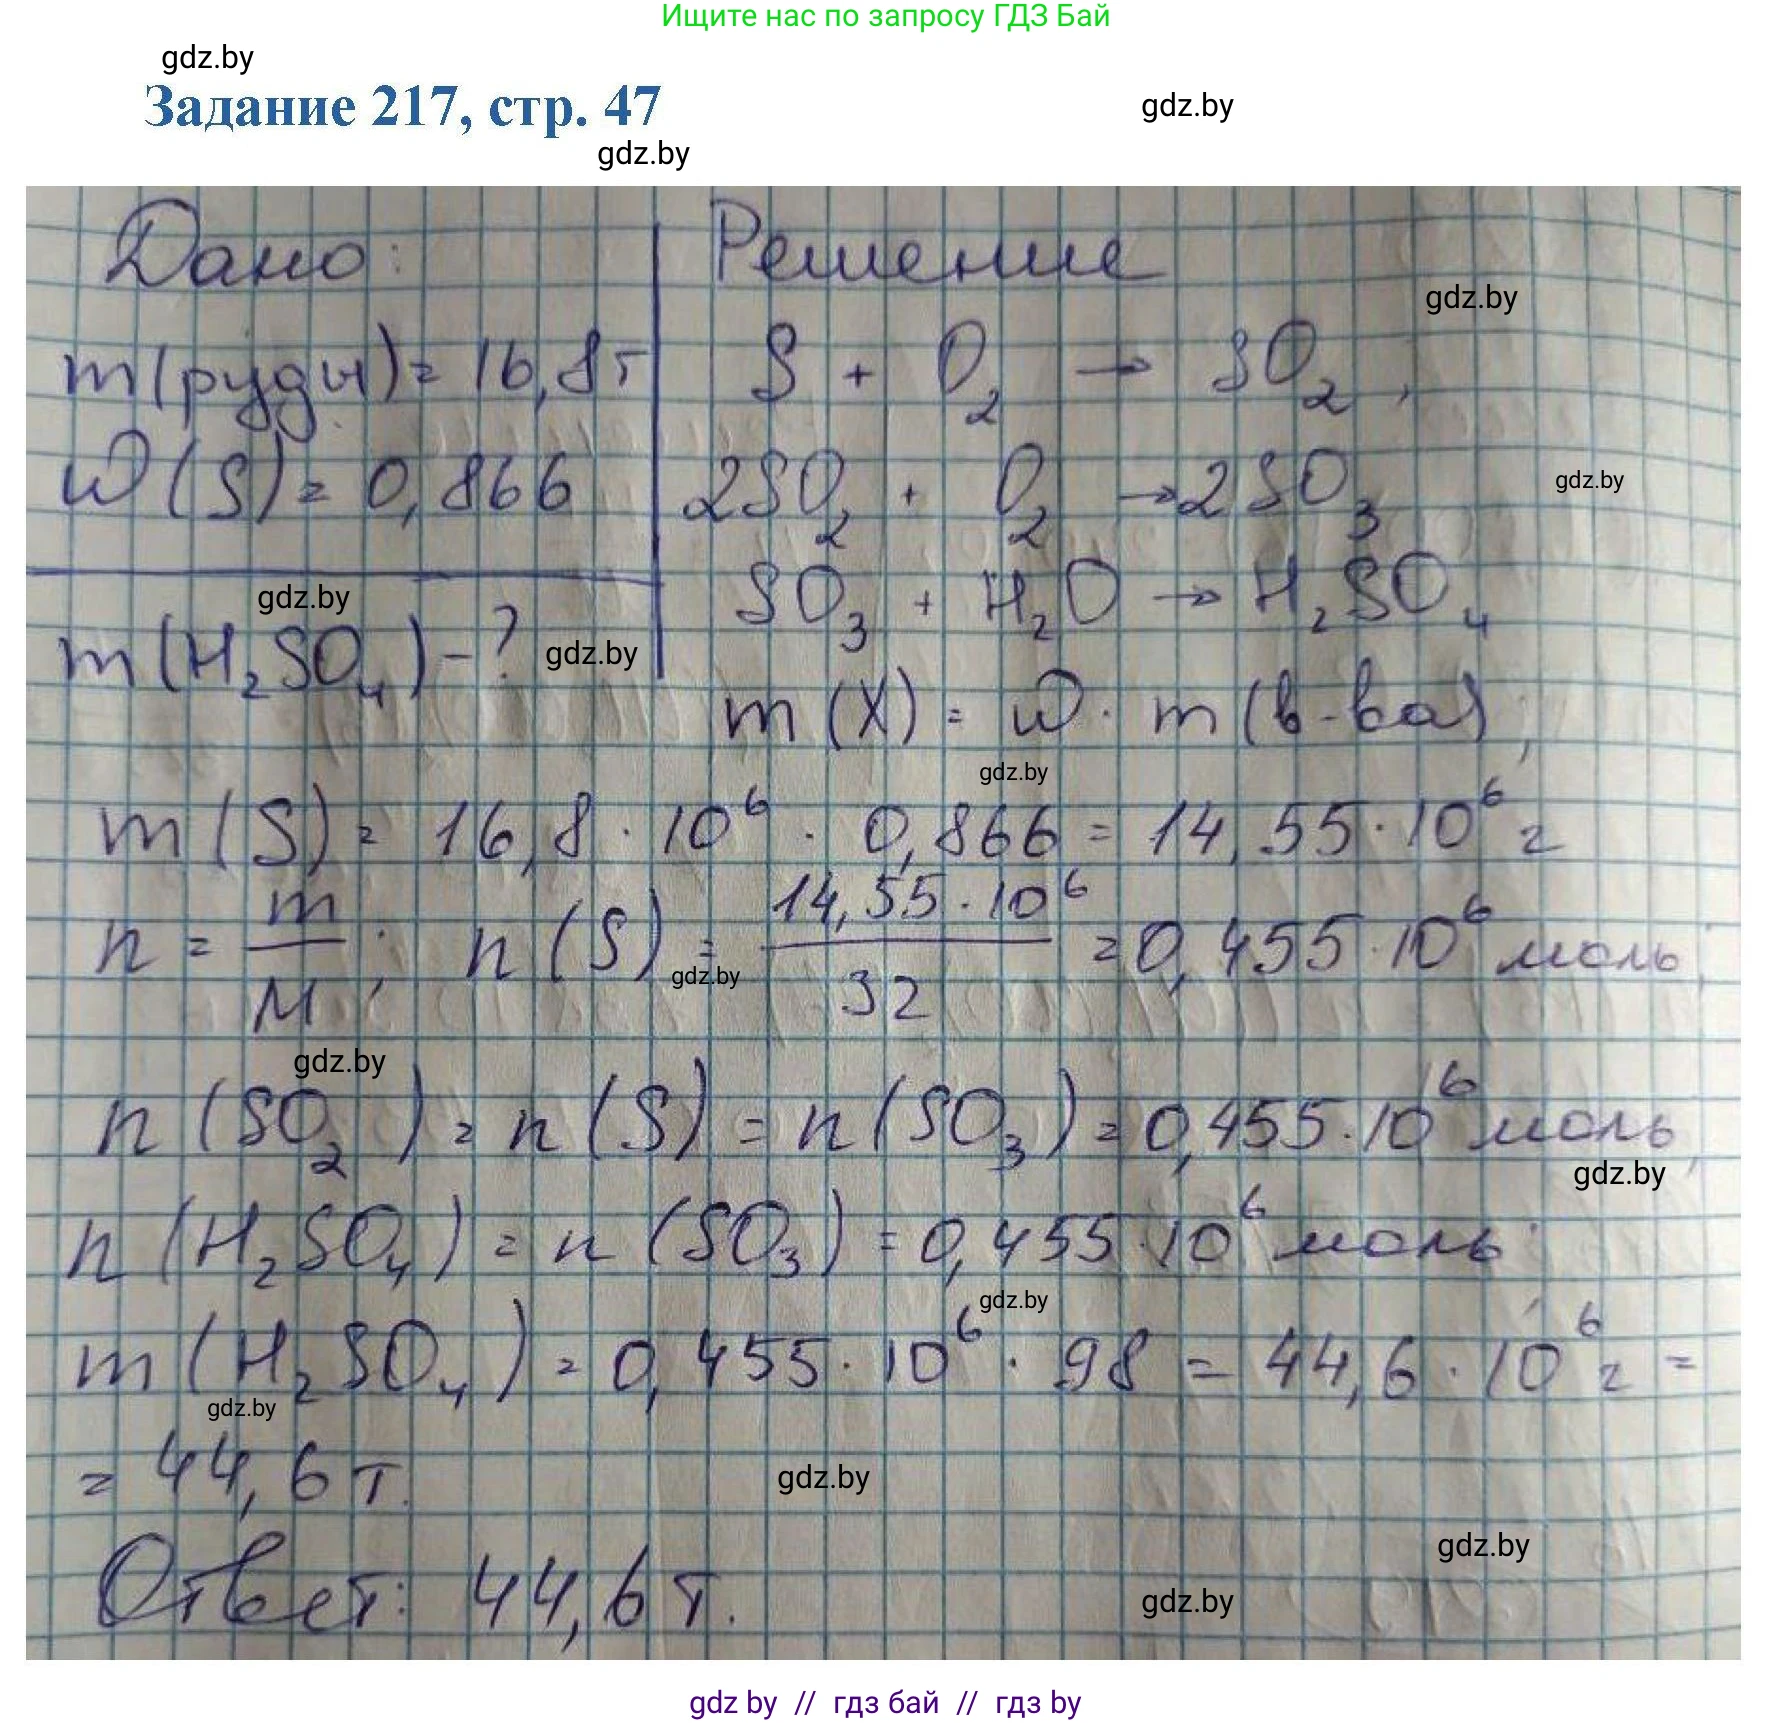 Ищите нас по запросу ГДЗ Бай
gdz.by
Задание 217, стр. 47
gdz.by
gdz.by
Дано:
Решение
gdz.by
m(руды) = 16,8т
S + O₂ → SO₂,
W(S) = 0,866
2SO₂ + O₂ → 2SO₃
gdz.by
gdz.by
SO₃ + H₂O → H₂SO₄
m(H₂SO₄) - ?
gdz.by
m(X) = W · m(в-ва);
gdz.by
m(S) = 16,8 · 10⁶ · 0,866 = 14,55 · 10⁶ г
n = m/M; n(S) = 14,55 · 10⁶/32 = 0,455 · 10⁶ моль;
gdz.by
gdz.by
n(SO₂) = n(S) = n(SO₃) = 0,455 · 10⁶ моль,
gdz.by
n(H₂SO₄) = n(SO₃) = 0,455 · 10⁶ моль;
gdz.by
m(H₂SO₄) = 0,455 · 10⁶ · 98 = 44,6 · 10⁶ г =
gdz.by
= 44,6 т.
gdz.by
gdz.by
Ответ: 44,6 т.
gdz.by
gdz by // гдз бай // гдз by